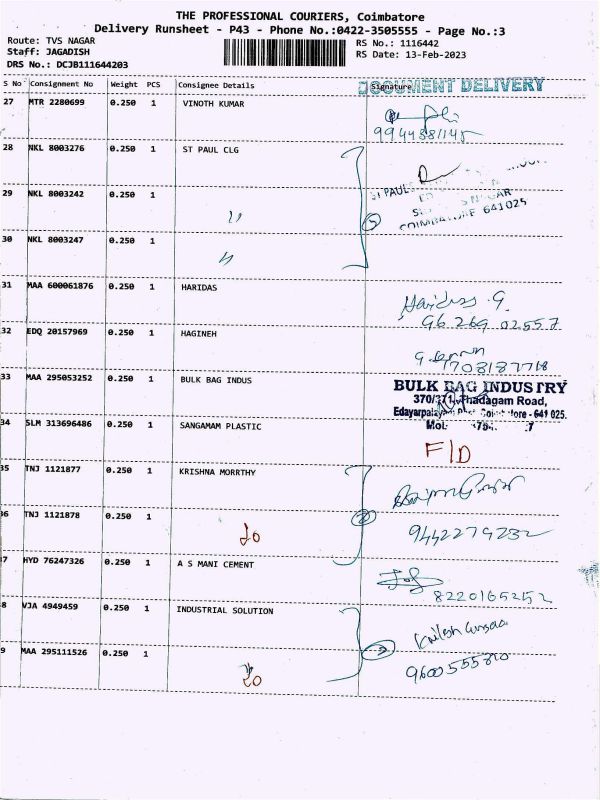 THE PROFESSIONAL COURIERS, Coimbatore
Delivery Runsheet - P43 - Phone No.:0422-3505555 - Page No.:3
Route: TVS NAGAR
RS No.: 1116442
Staff: JAGADISH
RS Date: 13-Feb-2023
DRS No.: DCJB111644203
S No Consignment No Weight PCS Consignee Details Signature
DOCUMENT DELIVERY
27 MTR 2280699 0.250 1 VINOTH KUMAR
28 NKL 8003276 0.250 1 ST PAUL CLG
ST PAUL
29 NKL 8003242 0.250 1 〃
5
COIMBATORE 641025
30 NKL 8003247 0.250 1 〃
31 MAA 600061876 0.250 1 HARIDAS
Haridass G.
96 269 02557
32 EDQ 20157969 0.250 1 HAGINEH
33 MAA 295053252 0.250 1 BULK BAG INDUS
BULK BAG INDUSTRY
370/371, Thadagam Road,
Edayarpalayam Post, Coimbatore - 641 025.
34 SLM 313696486 0.250 1 SANGAMAM PLASTIC
F/D
35 TNJ 1121877 0.250 1 KRISHNA MORRTHY
36 TNJ 1121878 0.250 1
2
9442279232
37 HYD 76247326 0.250 1 A S MANI CEMENT
8220165252
38 VJA 4949459 0.250 1 INDUSTRIAL SOLUTION
39 MAA 295111526 0.250 1
2